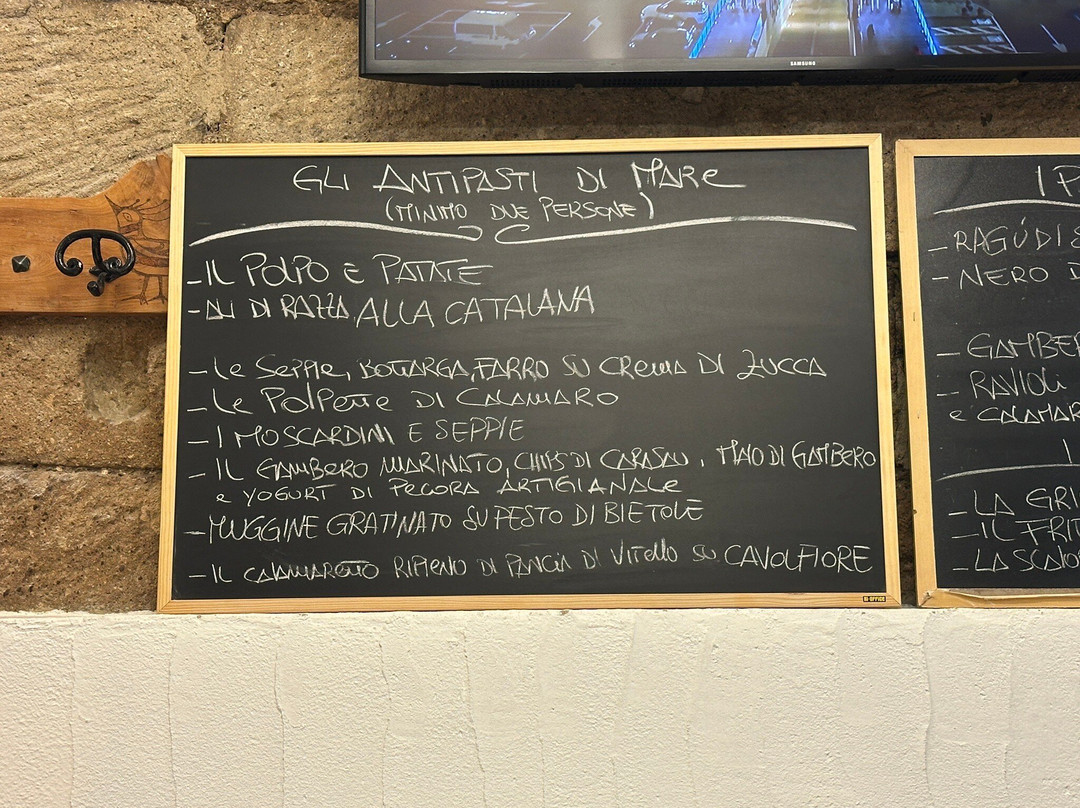 SAMSUNG
GLI ANTIPASTI DI MARE
(MINIMO DUE PERSONE)
- IL POLPO E PATATE
- ALI DI RAZZA ALLA CATALANA
- Le SEPPIE, BOTTARGA, FARRO SU CREMA DI ZUCCA
- Le POLPETTE DI CALAMARO
- I MOSCARDINI E SEPPIE
- IL GAMBERO MARINATO, CHIPS DI CARASAU, MAIO DI GAMBERO
e YOGURT DI PECORA ARTIGIANALE
- MUGGINE GRATINATO SU PESTO DI BIETOLE
- IL CALAMARETTO RIPIENO DI PANCIA DI VITELLO SU CAVOLFIORE
BI-OFFICE
I P
- RAGÚ DI S
- NERO D
- GAMBER
- RAVIOLI
e CALAMAR
I
- LA GRI
- IL FRIT
- LA SCALO